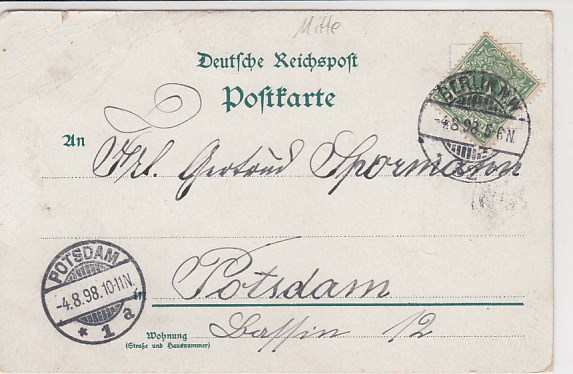 Mitte
Deutsche Reichspost
Postkarte
BERLIN N.W.
-4.8.98.5-6N.
An Frl. Gertrud Spormann
POTSDAM
-4.8.98.10-11N.
* 1 a
in Potsdam
Wohnung Bassin 12
(Straße und Hausnummer)